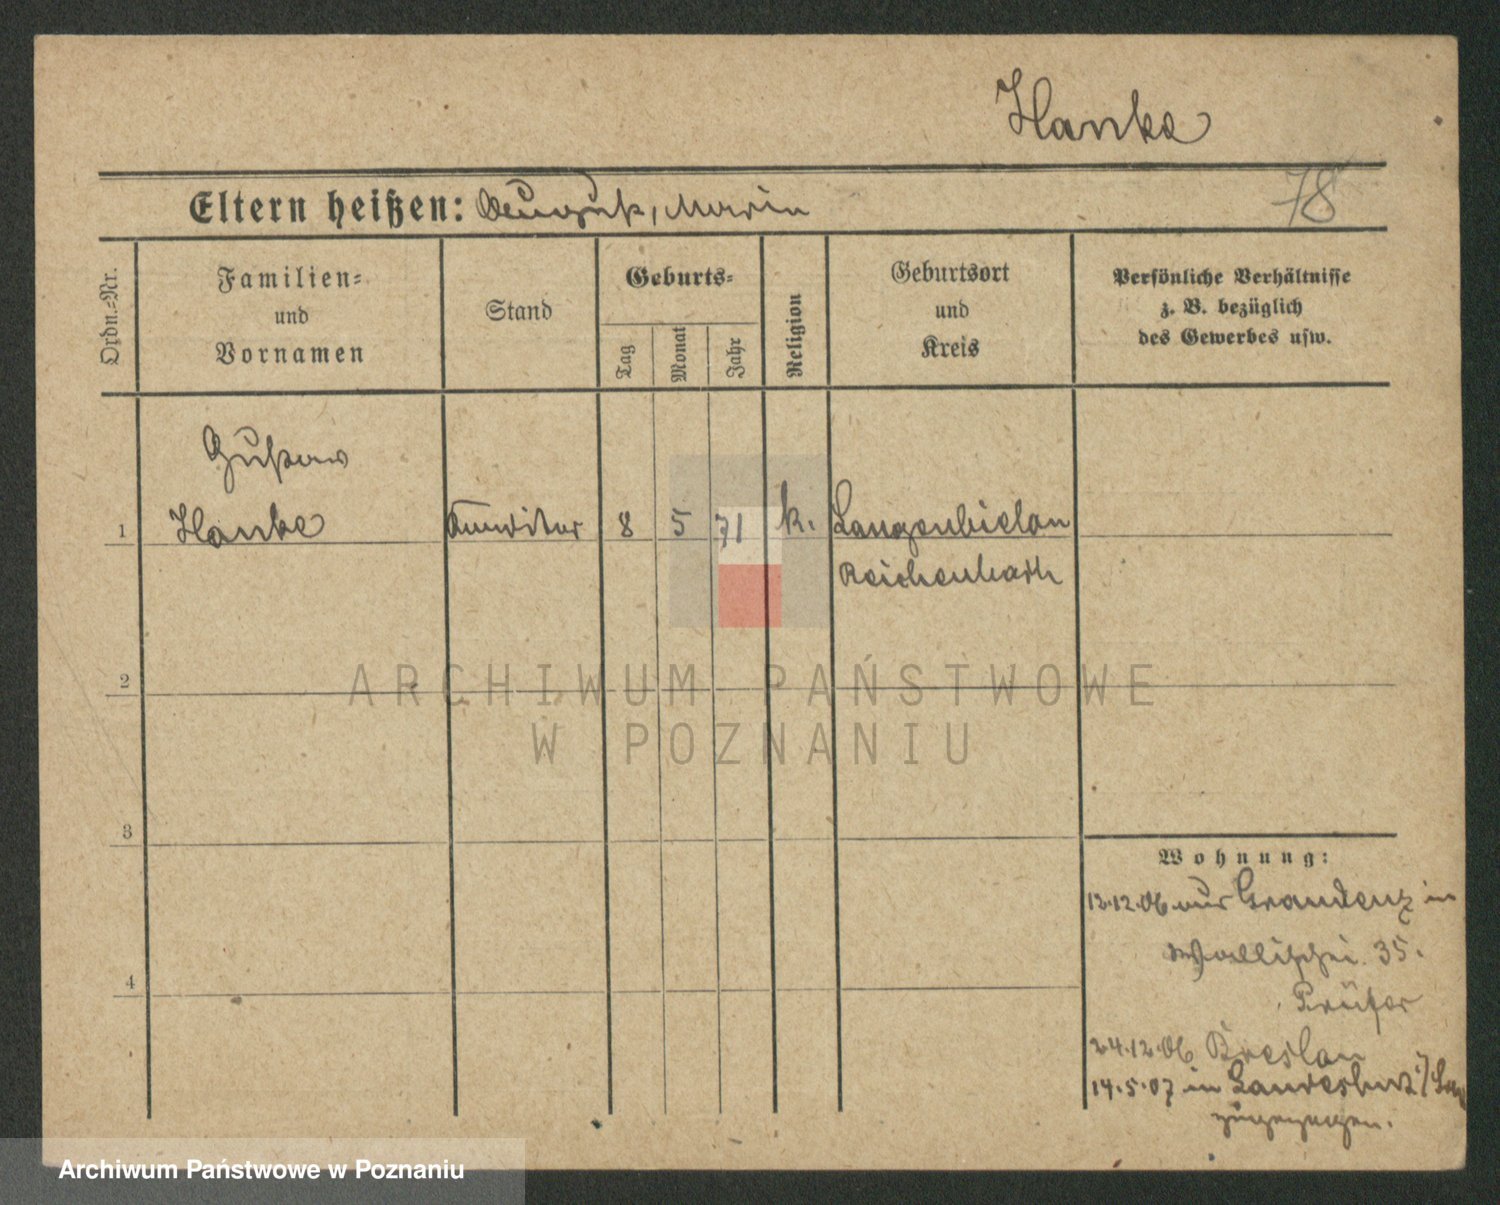 Hanke
78
Eltern heißen: August, Maria
Ordn.=Nr.
Familien=
und
Vornamen
Stand
Geburts=
Tag
Monat
Jahr
Religion
Geburtsort
und
Kreis
Persönliche Verhältnisse
z. B. bezüglich
des Gewerbes usw.
Gustav
1 Hanke Konditor 8 5 71 k. Langenbielau
Reichenbach
2
3
4
Wohnung:
12.12.06 aus Graudenz in
Wallischei 35.
Prüfer
24.12.06 Breslau
14.5.07 in Landeshut
zugezogen.
ARCHIWUM PAŃSTWOWE
W POZNANIU
Archiwum Państwowe w Poznaniu